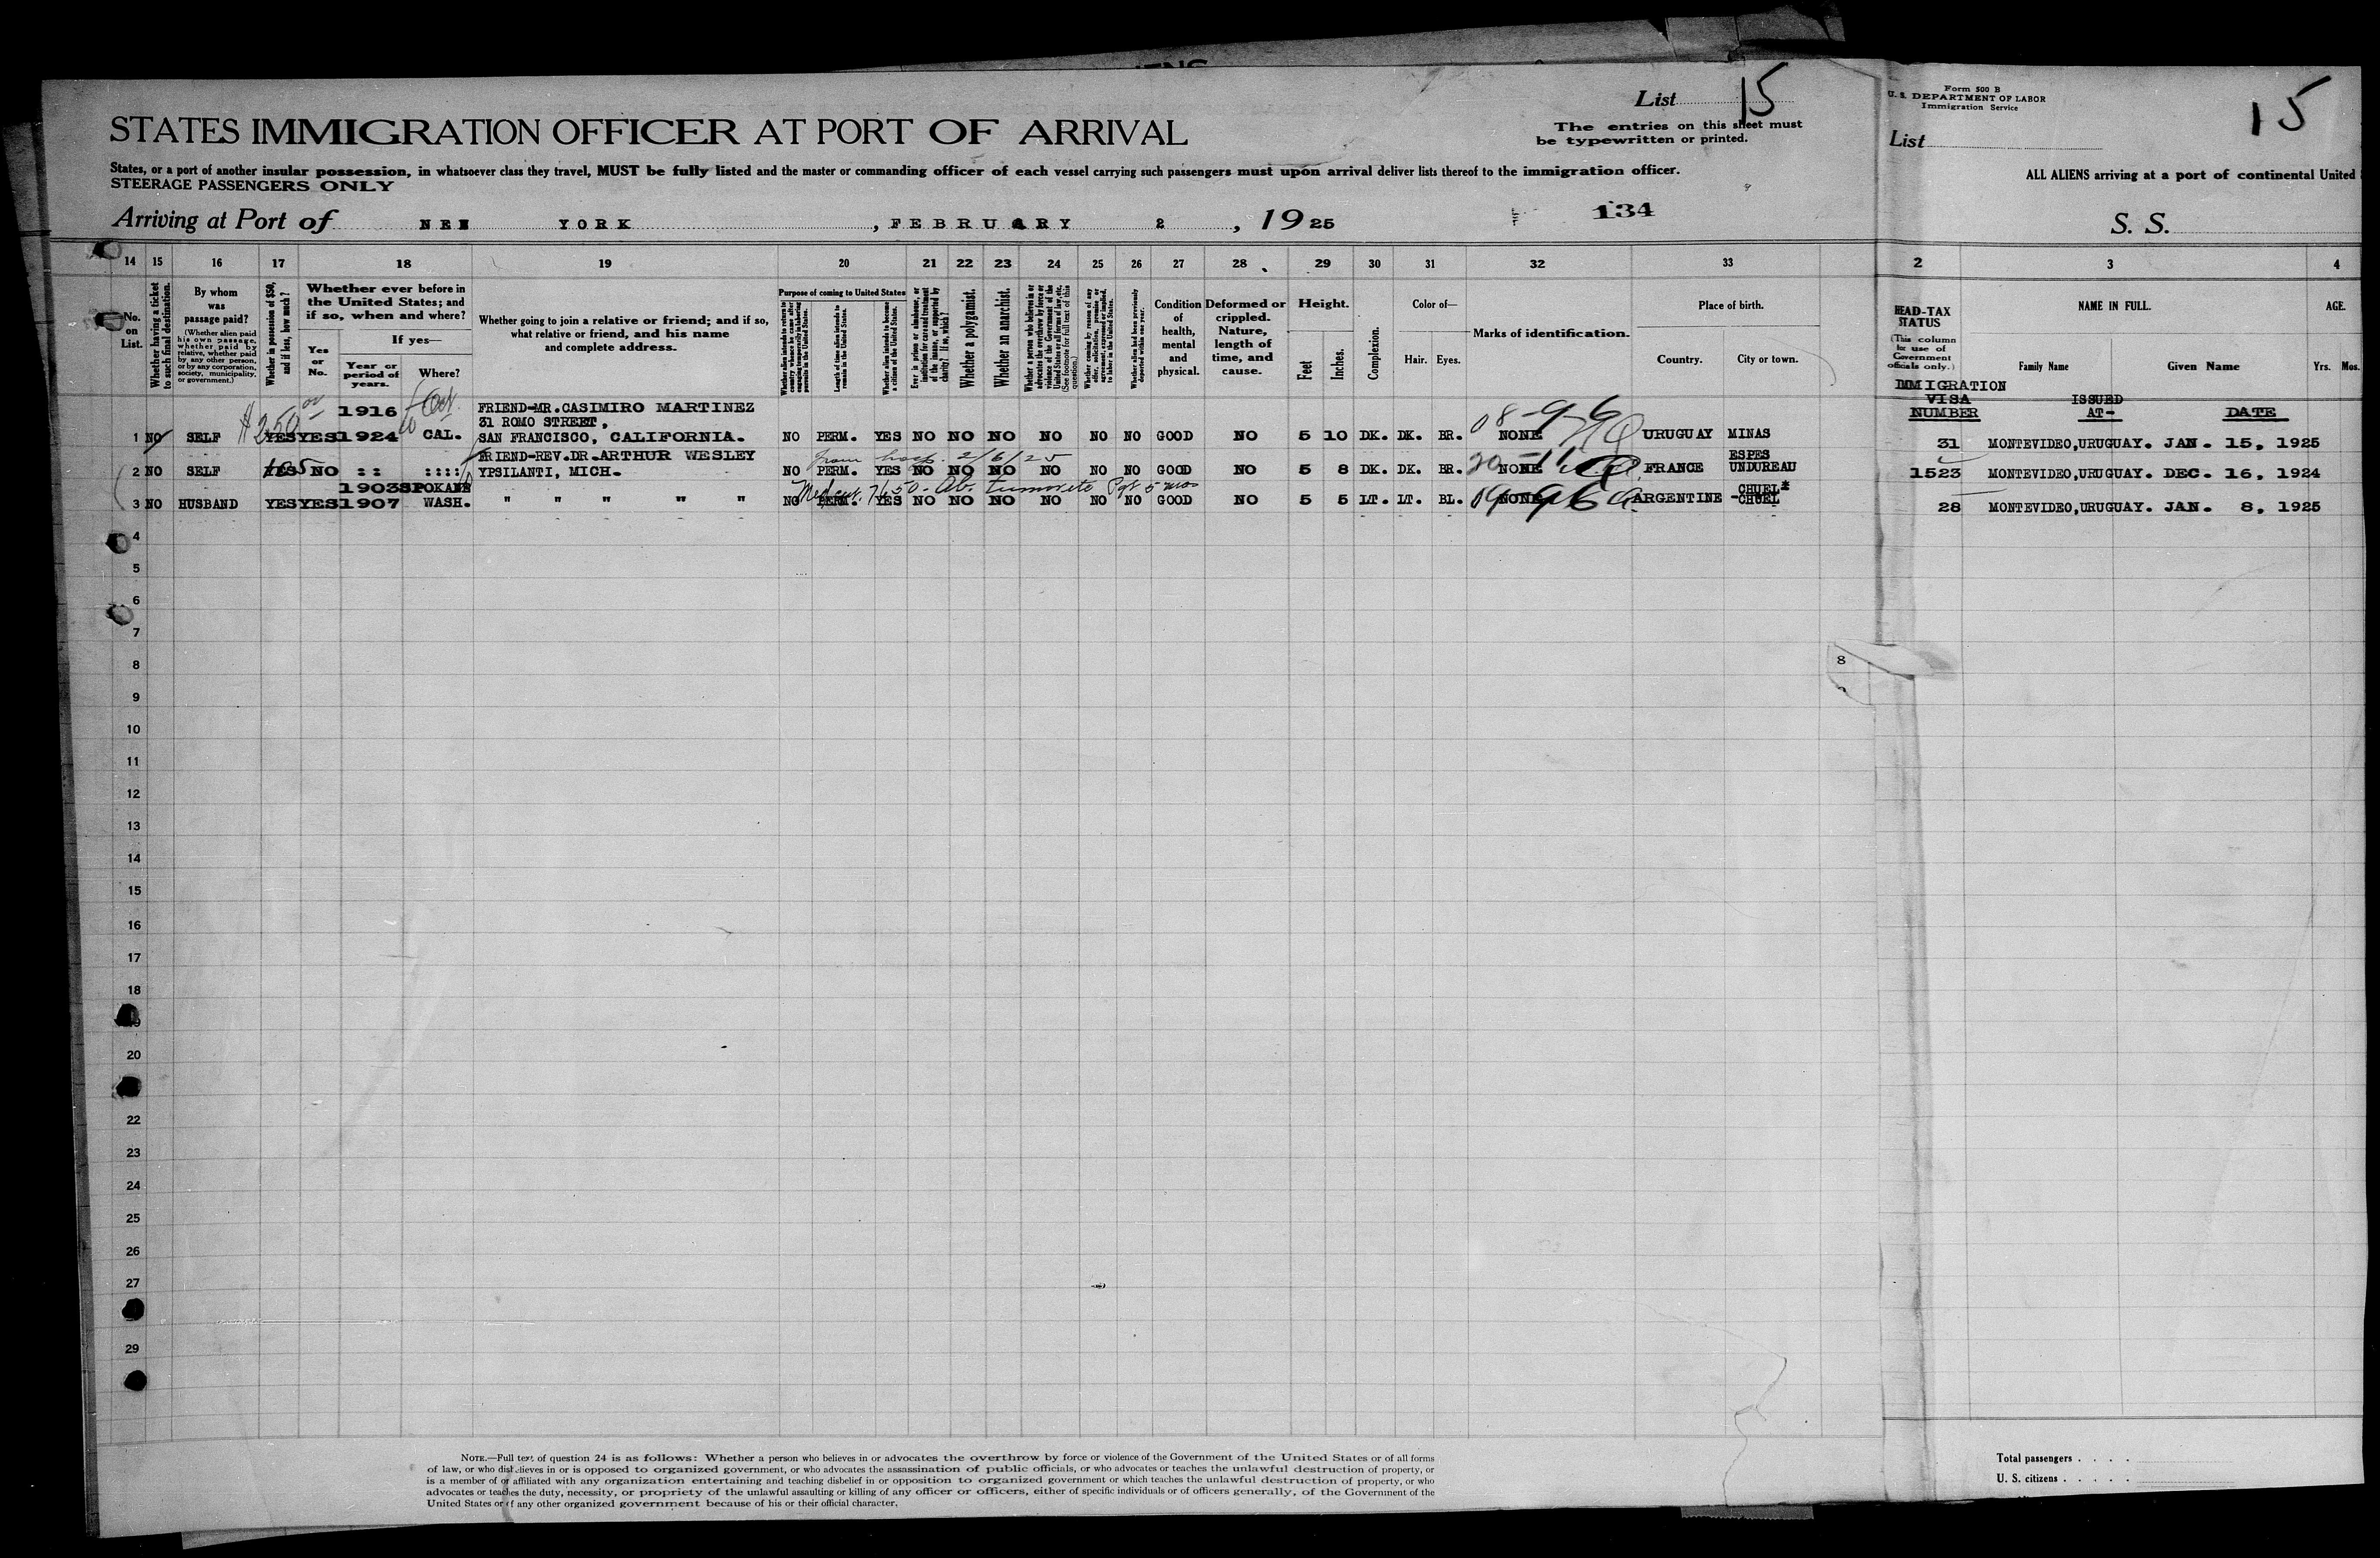 List 15
STATES IMMIGRATION OFFICER AT PORT OF ARRIVAL
The entries on this sheet must
be typewritten or printed.
States, or a port of another insular possession, in whatsoever class they travel, MUST be fully listed and the master or commanding officer of each vessel carrying such passengers must upon arrival deliver lists thereof to the immigration officer.
STEERAGE PASSENGERS ONLY
Arriving at Port of NEW YORK, FEBRUARY 2, 1925
134
14 15 16 17 18 19 20 21 22 23 24 25 26 27 28 29 30 31 32 33
No. on List.
Whether having a ticket to such final destination.
By whom was passage paid?
(Whether alien paid his own passage, whether paid by relative, whether paid by any other person, or by any corporation, society, municipality, or government.)
Whether in possession of $50, and if less, how much?
Whether ever before in the United States; and if so, when and where?
Yes or No.
If yes—
Year or period of years.
Where?
Whether going to join a relative or friend; and if so, what relative or friend, and his name and complete address.
Purpose of coming to United States
Whether alien intends to return to country whence he came after engaging temporarily in laboring pursuits in the United States.
Length of time alien intends to remain in the United States.
Whether alien intends to become a citizen of the United States.
Ever in prison or almshouse, or institution for care and treatment of the insane, or supported by charity? If so, which?
Whether a polygamist.
Whether an anarchist.
Whether a person who believes in or advocates the overthrow by force or violence of the Government of the United States or all forms of law, etc. (See footnote for full text of this question.)
Whether coming by reason of any offer, solicitation, promise or agreement, expressed or implied, to labor in the United States.
Whether alien had been previously deported within one year.
Condition of health, mental and physical.
Deformed or crippled. Nature, length of time, and cause.
Height.
Feet Inches.
Complexion.
Color of—
Hair. Eyes.
Marks of identification.
Place of birth.
Country. City or town.
$250 00 1916 Oct. FRIEND-MR.CASIMIRO MARTINEZ
31 ROMO STREET,
1 NO SELF YES YES 1924 CAL. SAN FRANCISCO, CALIFORNIA. NO PERM. YES NO NO NO NO NO NO GOOD NO 5 10 DK. DK. BR. NONE URUGUAY MINAS
FRIEND-REV.DR.ARTHUR WESLEY from hosp. 2/6/25 ESPES
2 NO SELF YES NO :: :::: YPSILANTI, MICH. NO PERM. YES NO NO NO NO NO NO GOOD NO 5 8 DK. DK. BR. NONE FRANCE UNDUREAU
1903 SPOKANE CHUEL*
3 NO HUSBAND YES YES 1907 WASH. " " " " " NO PERM. YES NO NO NO NO NO NO GOOD NO 5 5 LT. LT. BL. NONE ARGENTINE -CHUEL
4
5
6
7
8
9
10
11
12
13
14
15
16
17
18
20
22
23
24
25
26
27
28
29
8
NOTE.—Full text of question 24 is as follows: Whether a person who believes in or advocates the overthrow by force or violence of the Government of the United States or of all forms
of law, or who disbelieves in or is opposed to organized government, or who advocates the assassination of public officials, or who advocates or teaches the unlawful destruction of property, or
is a member of or affiliated with any organization entertaining and teaching disbelief in or opposition to organized government or which teaches the unlawful destruction of property, or who
advocates or teaches the duty, necessity, or propriety of the unlawful assaulting or killing of any officer or officers, either of specific individuals or of officers generally, of the Government of the
United States or of any other organized government because of his or their official character.
Form 500 B
U. S. DEPARTMENT OF LABOR
Immigration Service
15
List
ALL ALIENS arriving at a port of continental United
S. S.
2 3 4
HEAD-TAX STATUS
(This column for use of Government officials only.)
NAME IN FULL.
Family Name Given Name
AGE.
Yrs. Mos.
IMMIGRATION
VISA ISSUED
NUMBER AT- DATE
31 MONTEVIDEO,URUGUAY. JAN. 15, 1925
1523 MONTEVIDEO,URUGUAY. DEC. 16, 1924
28 MONTEVIDEO,URUGUAY. JAN. 8, 1925
Total passengers
U. S. citizens